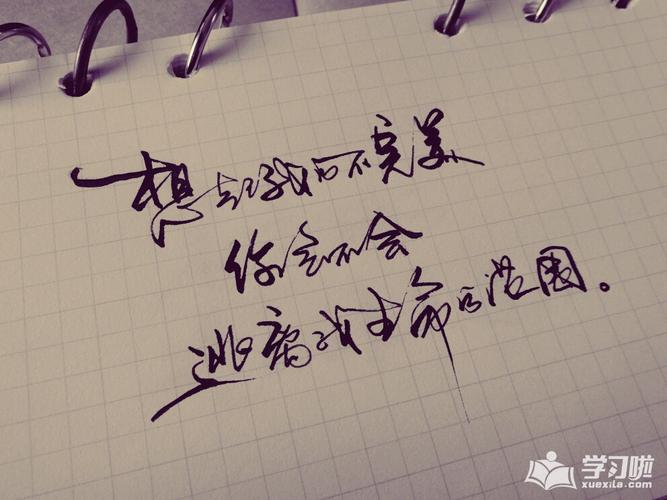 想起我的不完美
你会不会
逃离我生命的范围。
学习啦
xuexila.com